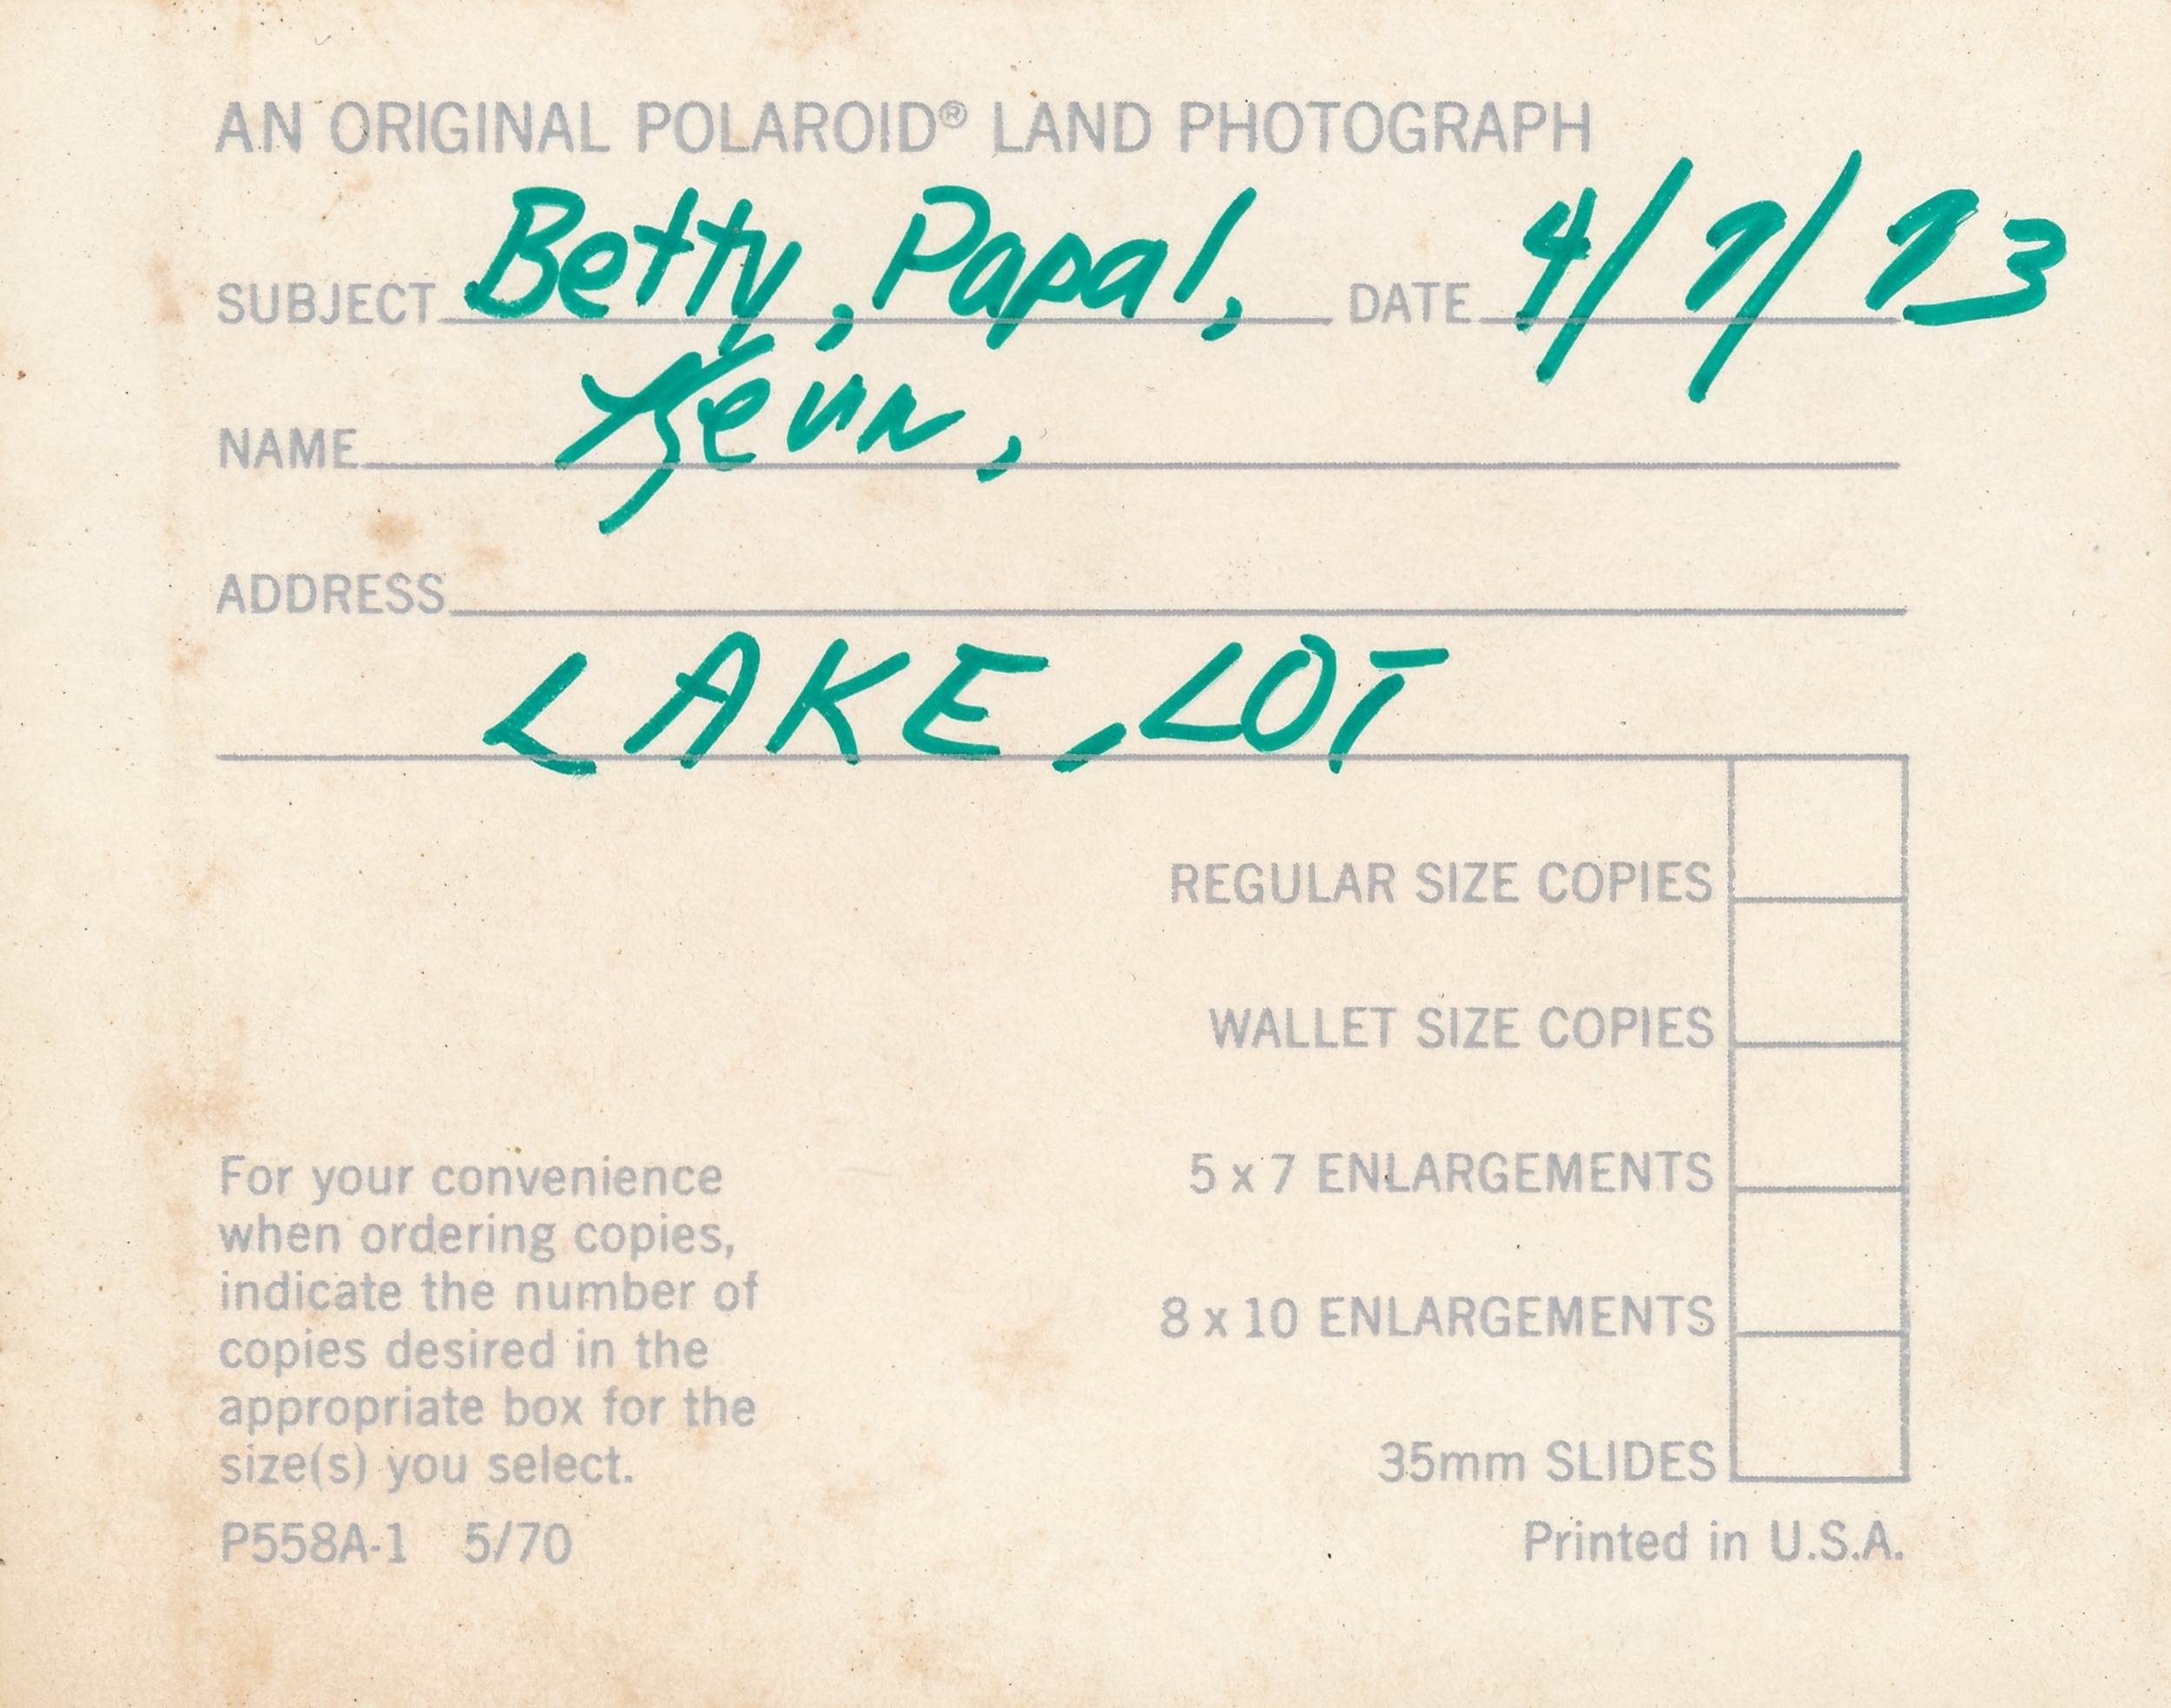 AN ORIGINAL POLAROID® LAND PHOTOGRAPH
SUBJECT Betty, Papal, DATE 4/7/73
NAME Kevin,
ADDRESS
LAKE, LOT
REGULAR SIZE COPIES
WALLET SIZE COPIES
5 x 7 ENLARGEMENTS
8 x 10 ENLARGEMENTS
35mm SLIDES
For your convenience
when ordering copies,
indicate the number of
copies desired in the
appropriate box for the
size(s) you select.
P558A-1 5/70
Printed in U.S.A.